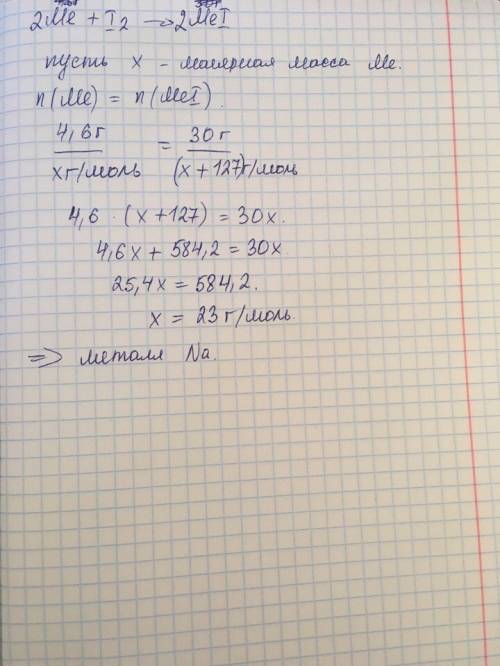 2Me + I₂ → 2MeI
пусть x - молярная масса Me.
n(Me) = n(MeI).
4,6г / xг/моль = 30г / (x+127)г/моль
4,6 · (x+127) = 30x.
4,6x + 584,2 = 30x
25,4x = 584,2.
x = 23 г/моль.
=> металл Na.